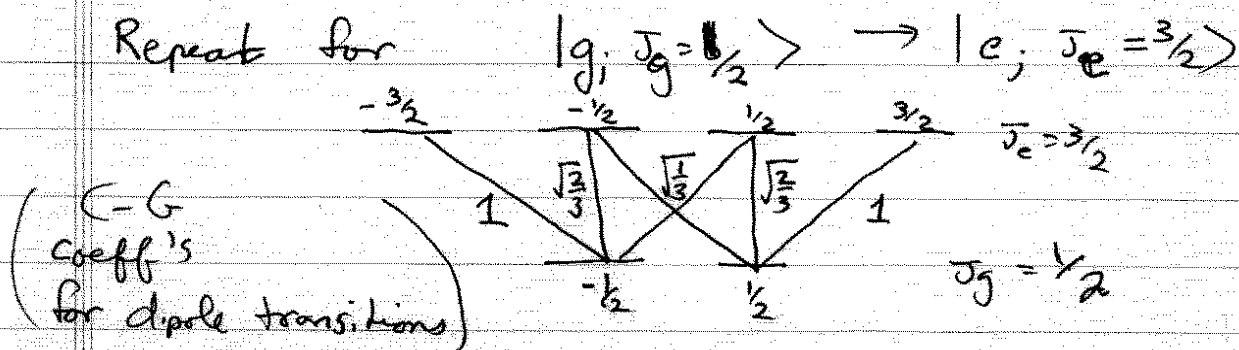 Repeat for |g; Jg = 1/2> → |e; Je = 3/2>
-3/2 -1/2 1/2 3/2 Je = 3/2
1 √2/3 √1/3 √2/3 1
(C-G
coeff's
for dipole transitions)
-1/2 1/2 Jg = 1/2